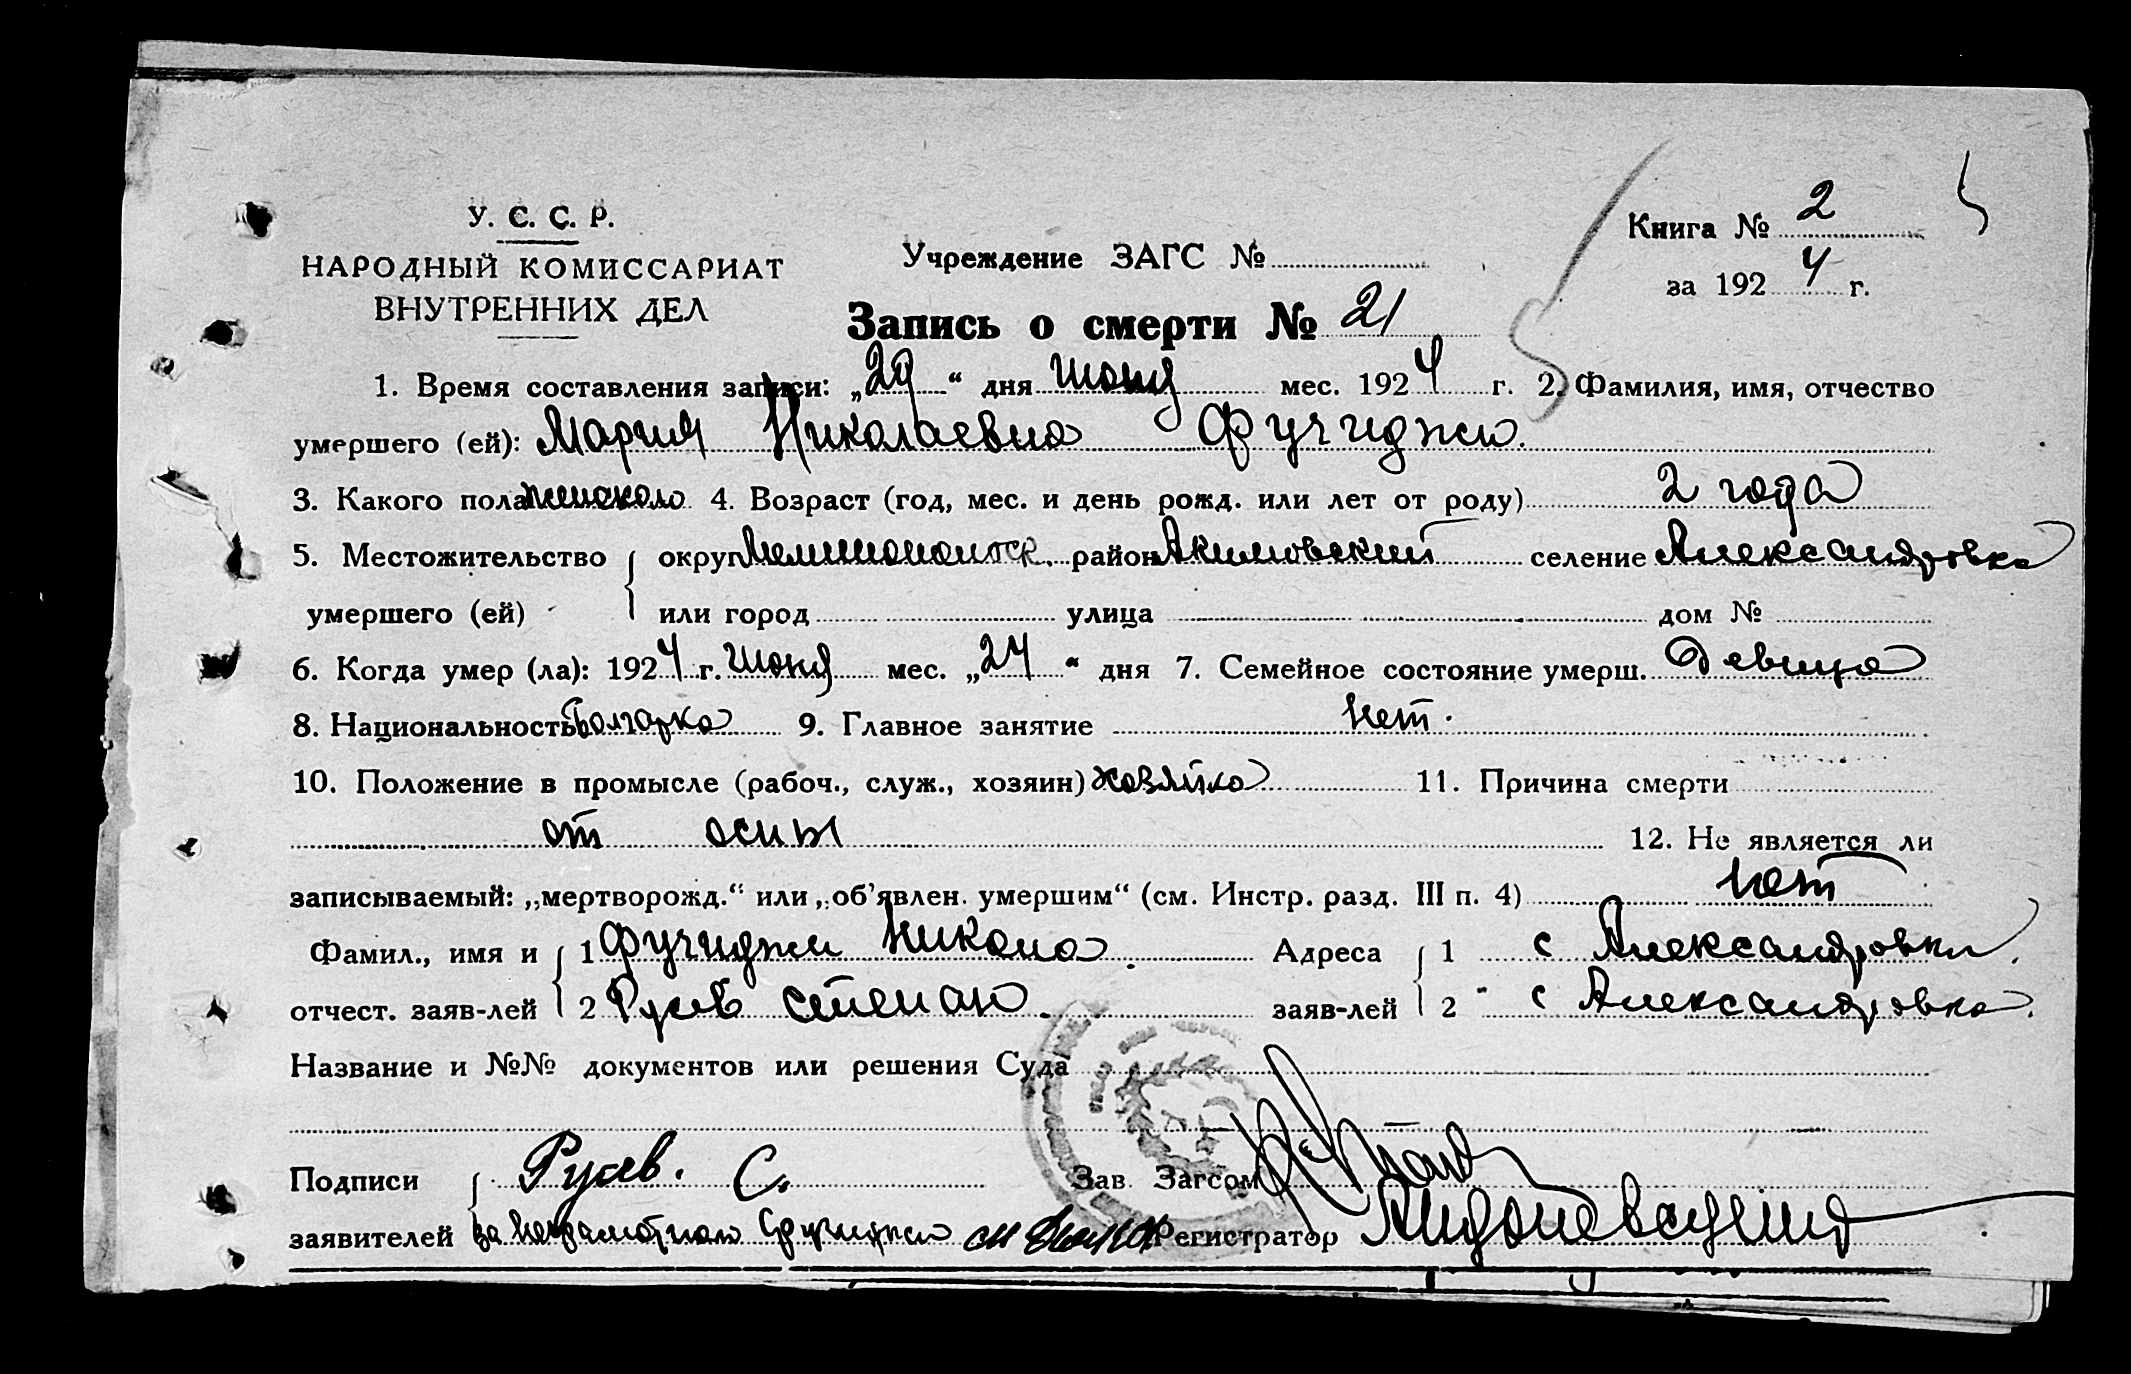 У. С. С. Р.
НАРОДНЫЙ КОМИССАРИАТ
ВНУТРЕННИХ ДЕЛ
Учреждение ЗАГС №
Книга № 2
за 1924 г.
Запись о смерти № 21
1. Время составления записи: „29“ дня июня мес. 1924 г. 2. Фамилия, имя, отчество
умершего (ей): Мария Николаевна Фучиджи.
3. Какого пола женского 4. Возраст (год, мес. и день рожд. или лет от роду) 2 года
5. Местожительство округ район Акимовский селение Александровка
умершего (ей) или город улица дом №
6. Когда умер (ла): 1924 г. июня мес. „24“ дня 7. Семейное состояние умерш. Девица
8. Национальность болгарка 9. Главное занятие нет.
10. Положение в промысле (рабоч., служ., хозяин) хозяйка 11. Причина смерти
от оспы 12. Не является ли
записываемый: „мертворожд.“ или „об’явлен. умершим“ (см. Инстр. разд. III п. 4) нет
Фамил., имя и 1 Фучиджи Никола. Адреса 1 с Александровка.
отчест. заяв-лей 2 Русев Степан. заяв-лей 2 с Александровка.
Название и №№ документов или решения Суда
Подписи Русев. С. Зав. Загсом
заявителей за неграмотного Фучиджи Регистратор